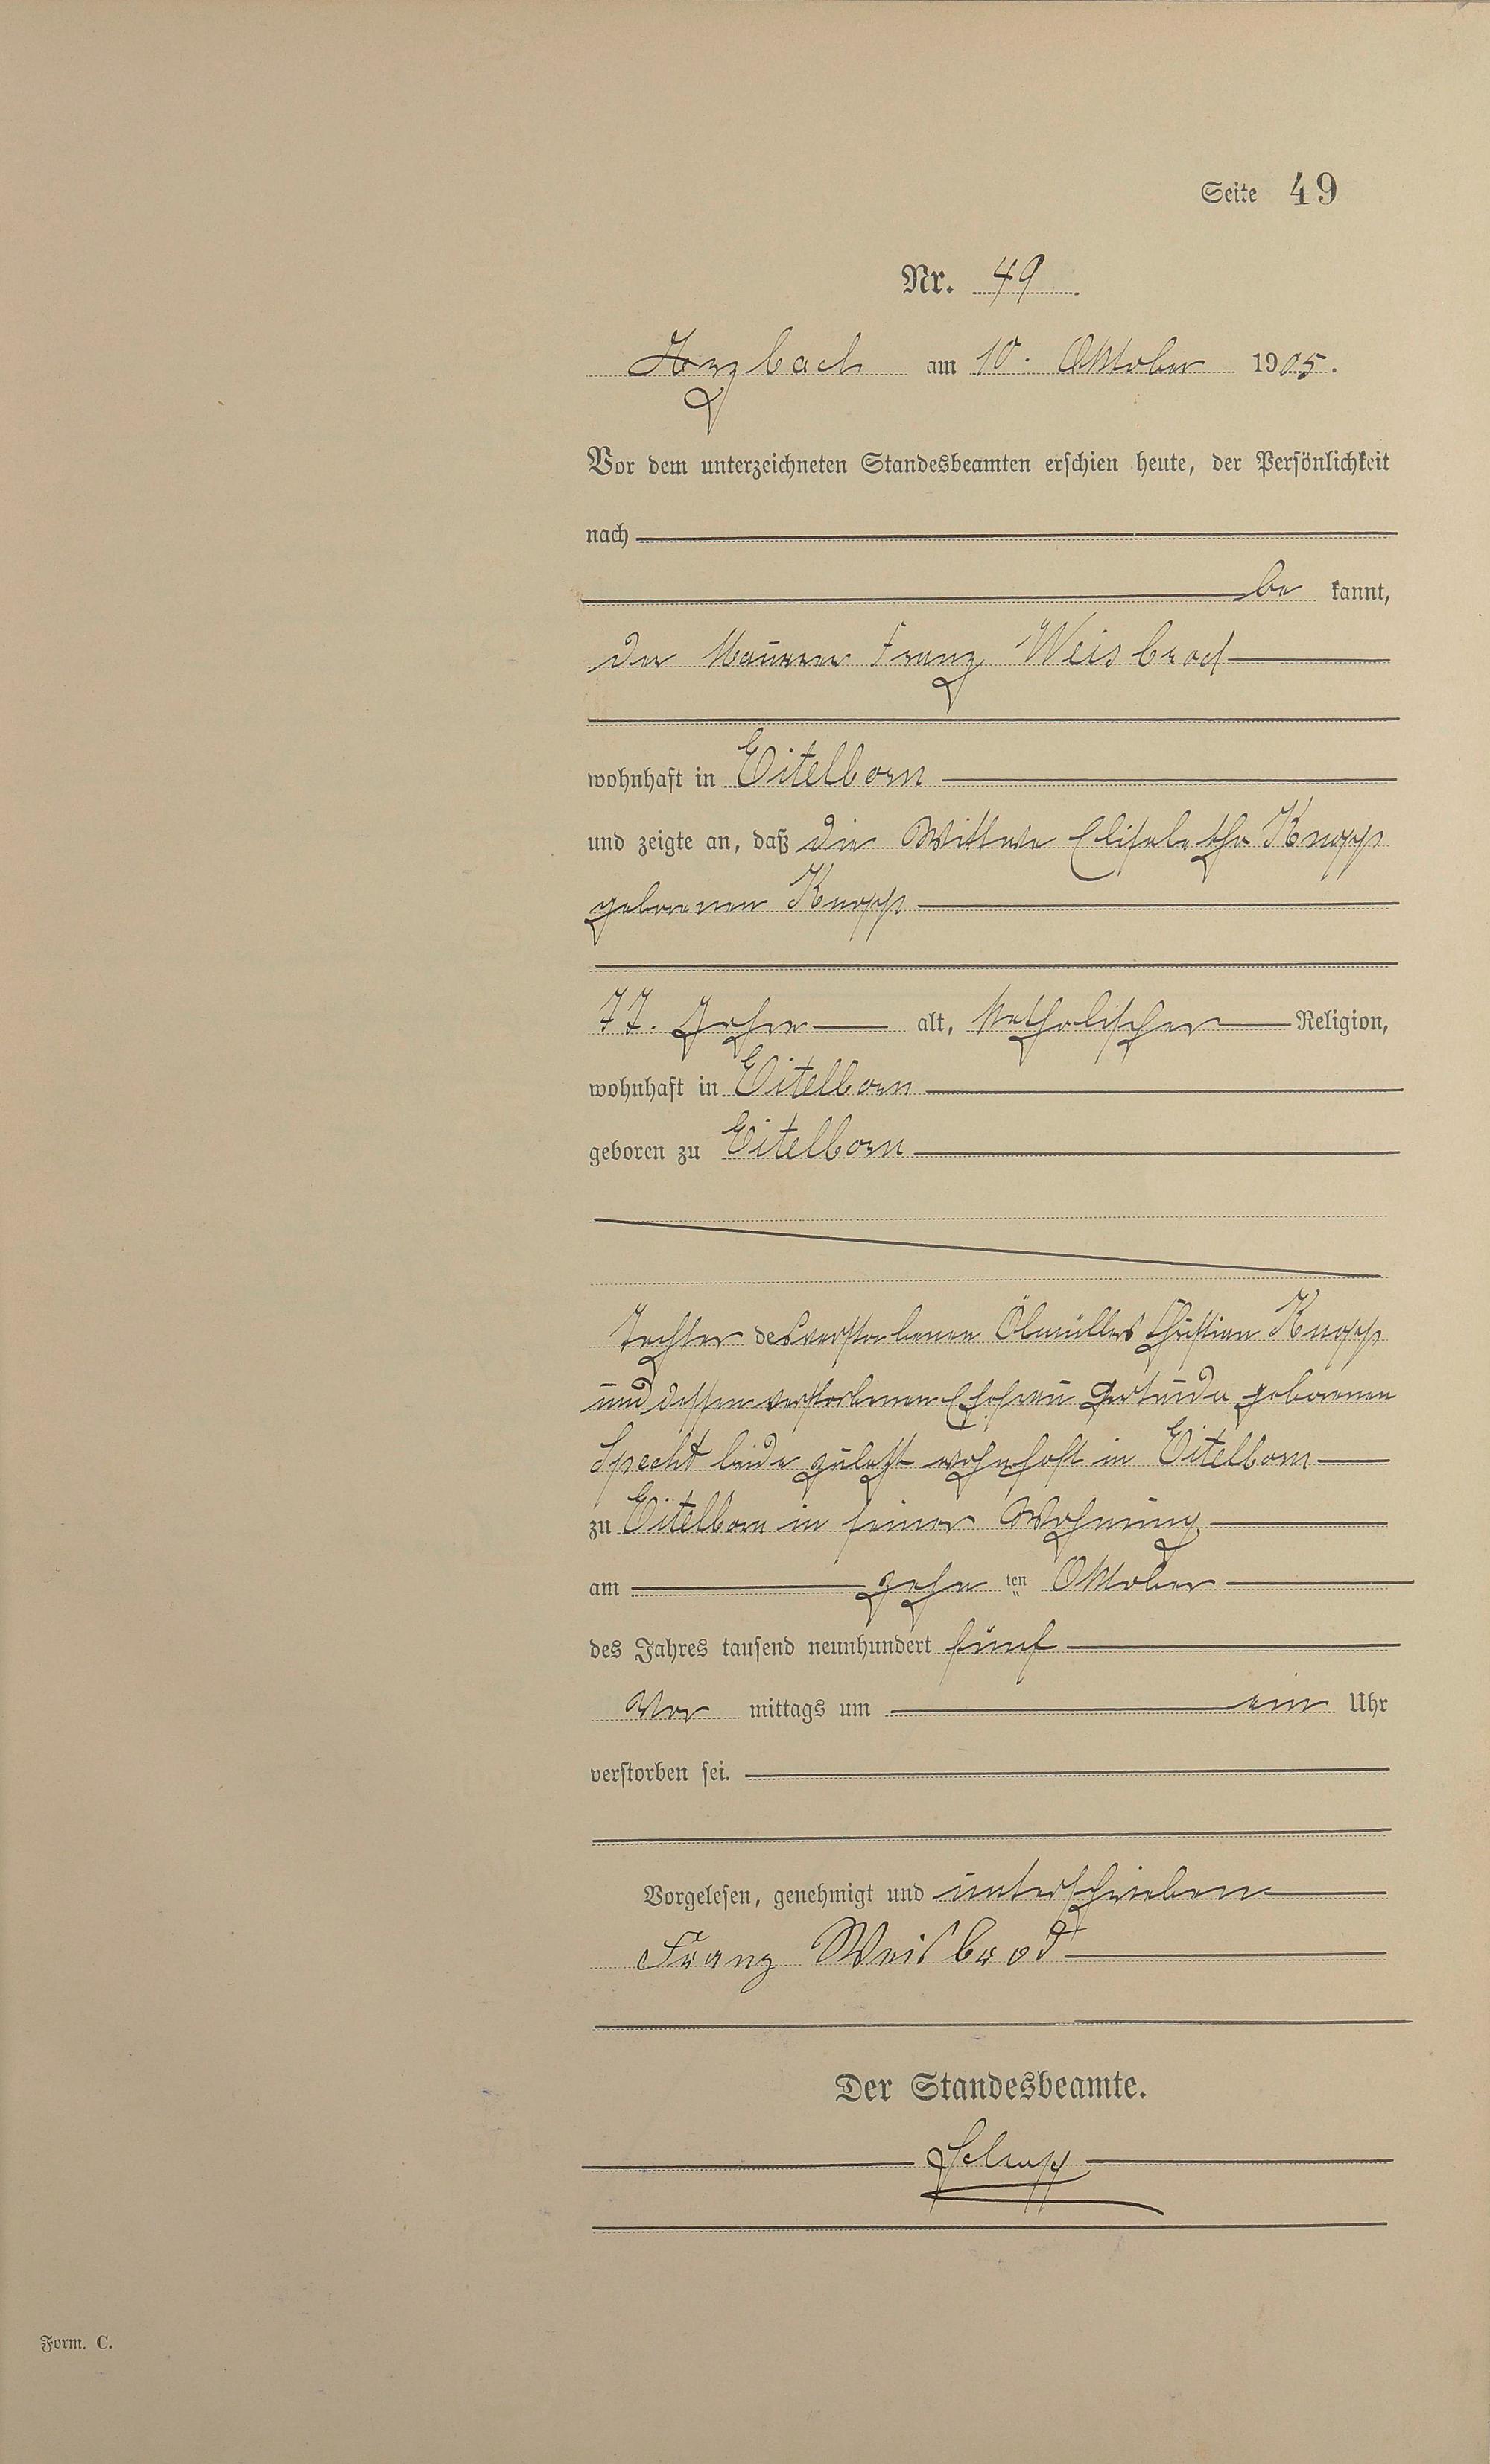 Seite 49
Nr. 49
am 10. Oktober 1905.
Vor dem unterzeichneten Standesbeamten erschien heute, der Persönlichkeit
nach
be kannt,
der Maurer Franz Weisbrod
wohnhaft in Eitelborn
und zeigte an, daß die Wittwe Elisabetha Knopp
geborenen Knopp
77. Jahre alt, katholischer Religion,
wohnhaft in Eitelborn
geboren zu Eitelborn
Tochter des verstorbenen Ölmüllers Christian Knopp
und dessen verstorbenen Ehefrau geborenen
Specht beide zuletzt wohnhaft in Eitelborn
zu Eitelborn in seiner Wohnung
am zehn ten Oktober
des Jahres tausend neunhundert fünf
Vor mittags um ein Uhr
verstorben sei.
Vorgelesen, genehmigt und unterschrieben
Franz Weisbrod
Der Standesbeamte.
Form. C.